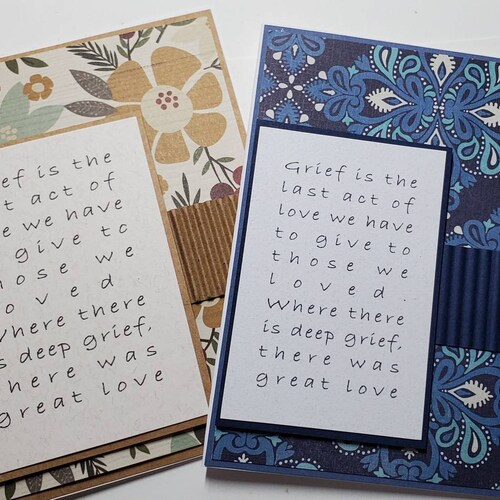 ef is the
st act of
e we have
give to
hose we
oved
Where there
s deep grief,
here was
great love
Grief is the
last act of
love we have
to give to
those we
loved.
Where there
is deep grief,
there was
great love